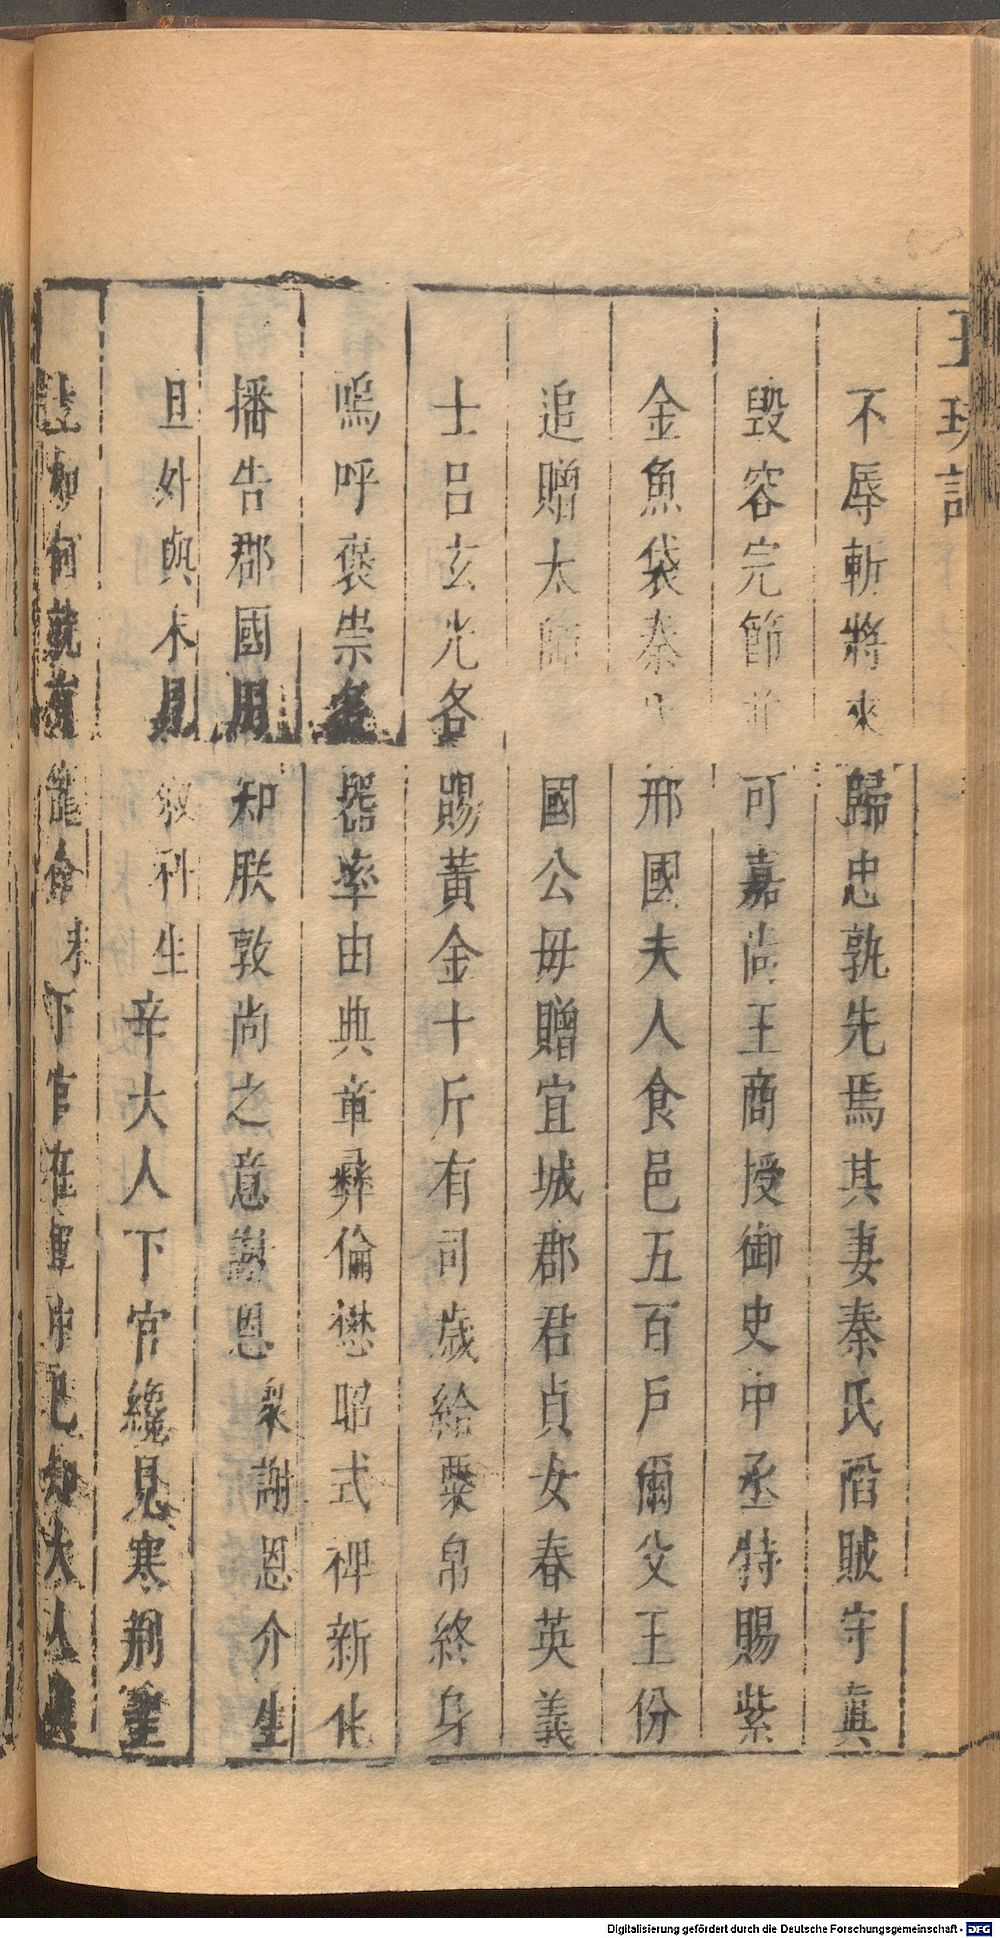 不辱斬將來歸忠孰先焉其妻秦氏陷賊守眞
毀容完節並可嘉尚王商授御史中丞特賜紫
金魚袋秦氏邢國夫人食邑五百戶爾父王份
追贈太師國公毋贈宜城郡君貞女春英義
士呂玄光各賜黃金十斤有司歲給粟帛終身
嗚呼褒崇名器率由典章彝倫懋昭式裨新化
播告郡國用知朕敦尚之意謝恩衆謝恩介生
且外與末見敘科生辛大人下官纔見寒荆
何就有寵命末下官在軍中已知大人
Digitalisierung gefördert durch die Deutsche Forschungsgemeinschaft - DFG